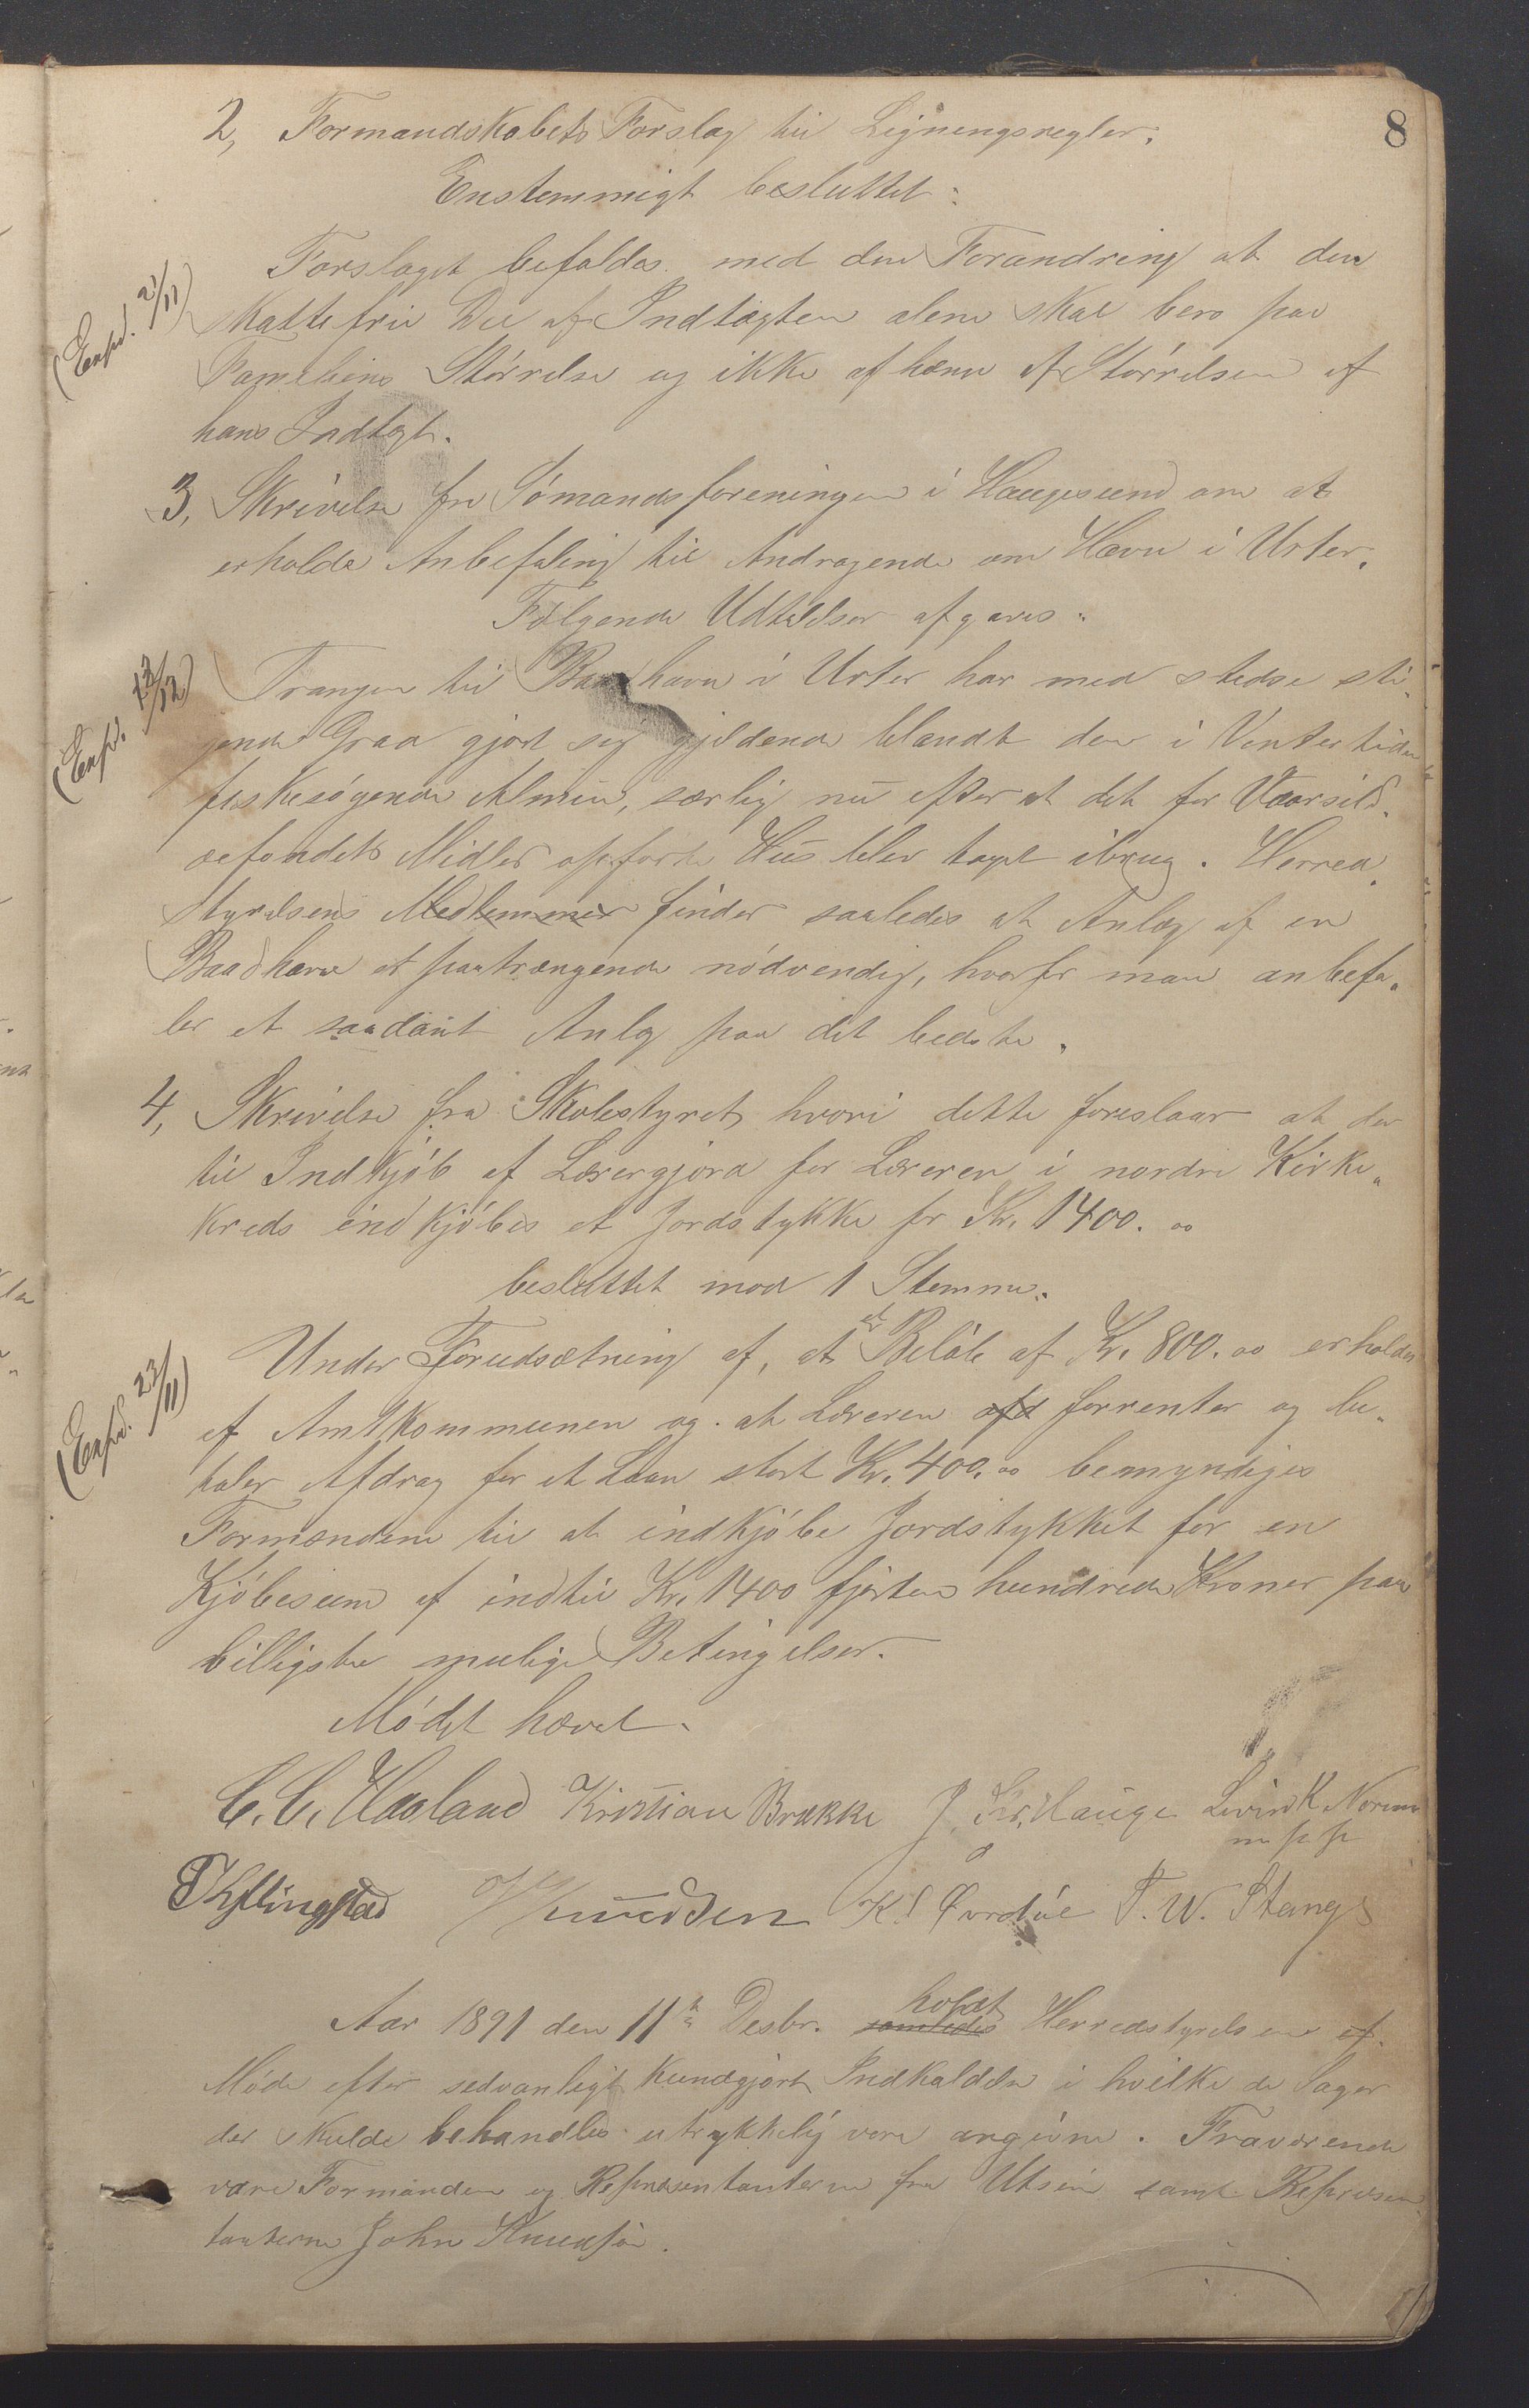 8
2, Formandskabets Forslag til Ligningsregler:
Enstemmigt besluttet:
Forslaget befaldes med den Forandring at den
(Exped. 2/11)
skattefrie Del af Indtægten alene skal bero paa
Familiens Størrelse og ikke af Størrelsen af
hans Indtægt.
3, Skrivelse fra Sømandsforeningen i Haugesund om at
erholde Anbefaling til Andragende om Havn i Urter.
Følgende Udtalelser afgaves:
Trangen til Baadhavn i Urter har med stedse sti-
(Exp. 13/12)
gende Grad gjort sig gjeldende blandt den i Vintertiden
fiskesøgende Almue, særlig nu efter at det for Vaarsild-
refondets Midler opførte Hus blev taget ibrug. Herred-
styrelsens Medlemmer finder saaledes at Anlæg af en
Baadhavn at paatrængende nødvendig, hvorfor man anbefa-
ler et saadant Anlæg paa det bedste.
4, Skrivelse fra Skolestyret hvori dette foreslaar at der
til Indkjøb af Lærergjord for Læreren i nordre Kirke-
kreds indkjøbes et Jordstykke for Kr. 1400.00
besluttet mod 1 Stemme:
Under Forudsætning af, at et Beløb af Kr. 800.00 erholdes
(Exped. 23/11)
af Amtkommunen og at Læreren forrenter og be-
taler Afdrag for et Laan stort Kr. 400.00 bemyndiges
Formanden til at indkjøbe Jordstykket for en
Kjøbesum af indtil Kr. 1400 fjorten hundrede Kroner paa
billigste mulige Betingelser.
Mødet hævet.
C. C. Haaland Kristian Brække J. Kr. Hauge Levin K. Norem
m p p
Knudsen K. Øvrebø T. W. Stange
Aar 1891 den 11te Desbr. samledes holdt Herredstyrelsen et
Møde efter sedvanligt kundgjort Indkaldelse i hvilke de Sager
der skulde behandles utrykkelig vare angivne. Fraværende
vare Formanden og Repræsentanterne fra Utsire samt Repræsen-
tanterne John Knudsen.